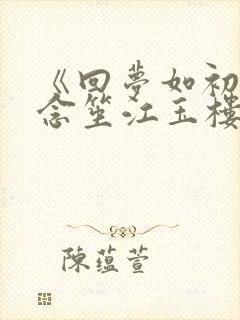 《回夢如初
念笙江玉樓
陳蘊萱